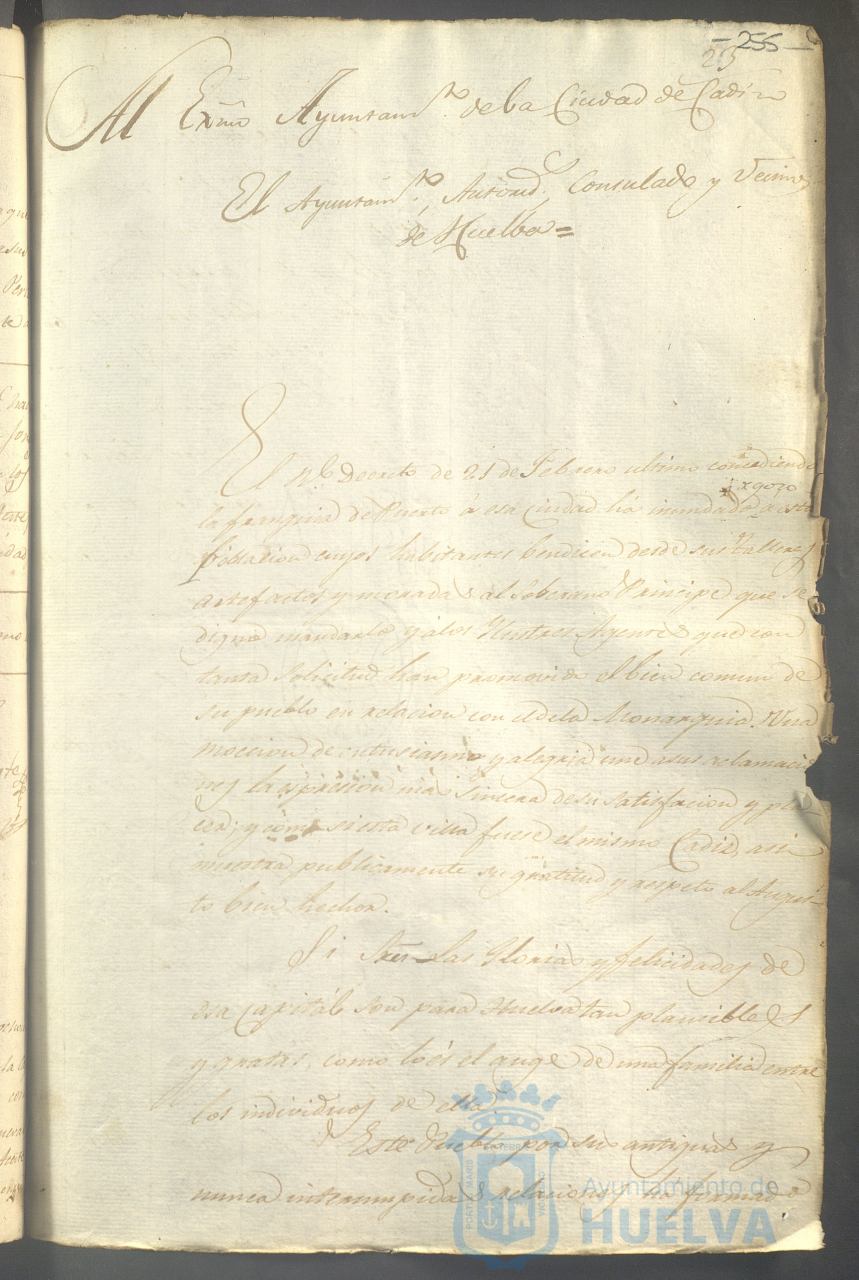 - 255 -
23
Al Exmo Ayuntamto. de la Ciudad de Cadiz
El Ayuntamto., Autorid., Consulado y Vecinos
de Huelba =
El Rl. Decreto de 21 de Febrero ultimo concediendo
la franquia de Puerto á esa Ciudad há inundado de gozo a esta
Poblacion cuyos habitantes bendicen desde sus talleres
artefactos y moradas al Soberano Principe que se
dignó mandarlo y a los Ilustres Agentes que con
tanta solicitud han promovido el bien comun de
su pueblo en relacion con el de la Monarquia. Una
moccion de entusiasmo y alegria une a sus aclamacio
nes la espresion mas sincera de su satisfacion y pla-
cer; y como si esta villa fuese el mismo Cadiz, assi
muestra publicamente su gratitud y respeto al Augus-
to bien hechor.
Si Sres. las Glorias y felicidades de
esa Capitál son para Huelva tan plausibles
y gratas, como lo és el auge de una familia entre
los individuos de ella.
Este Pueblo por sus antiguas y
nunca interrumpidas relaciones ha formado
Ayuntamiento de
HUELVA